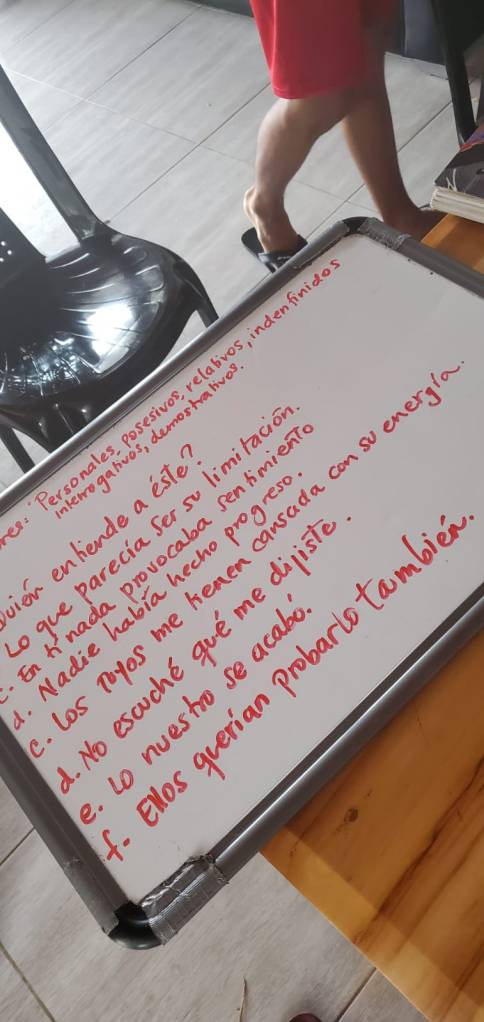 res: Personales, posesivos, relativos, indenfinidos
interrogativos, demostrativos.
Quién entiende a éste?
Lo que parecía ser su limitación.
C. En ti nada provocaba sentimiento
d. Nadie había hecho progreso.
C. Los tuyos me tienen cansada con su energía.
d. No escuché qué me dijiste.
e. Lo nuestro se acabó.
f. Ellos querían probarlo también.